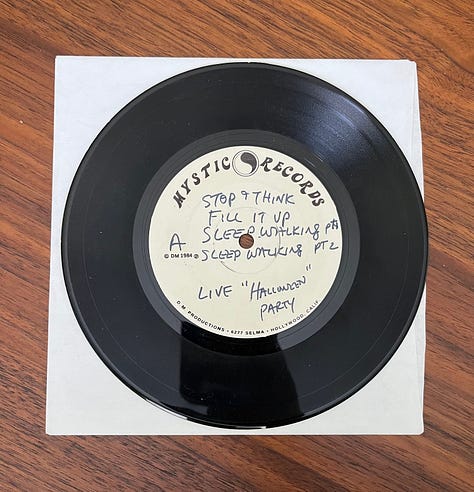 MYSTIC RECORDS
STOP & THINK
FILL IT UP
A SLEEP WALKING pt 1
© DM 1984 ℗ SLEEP WALKING PT 2
LIVE "HALLOWEEN"
PARTY
D M PRODUCTIONS • 6277 SELMA • HOLLYWOOD, CALIF.